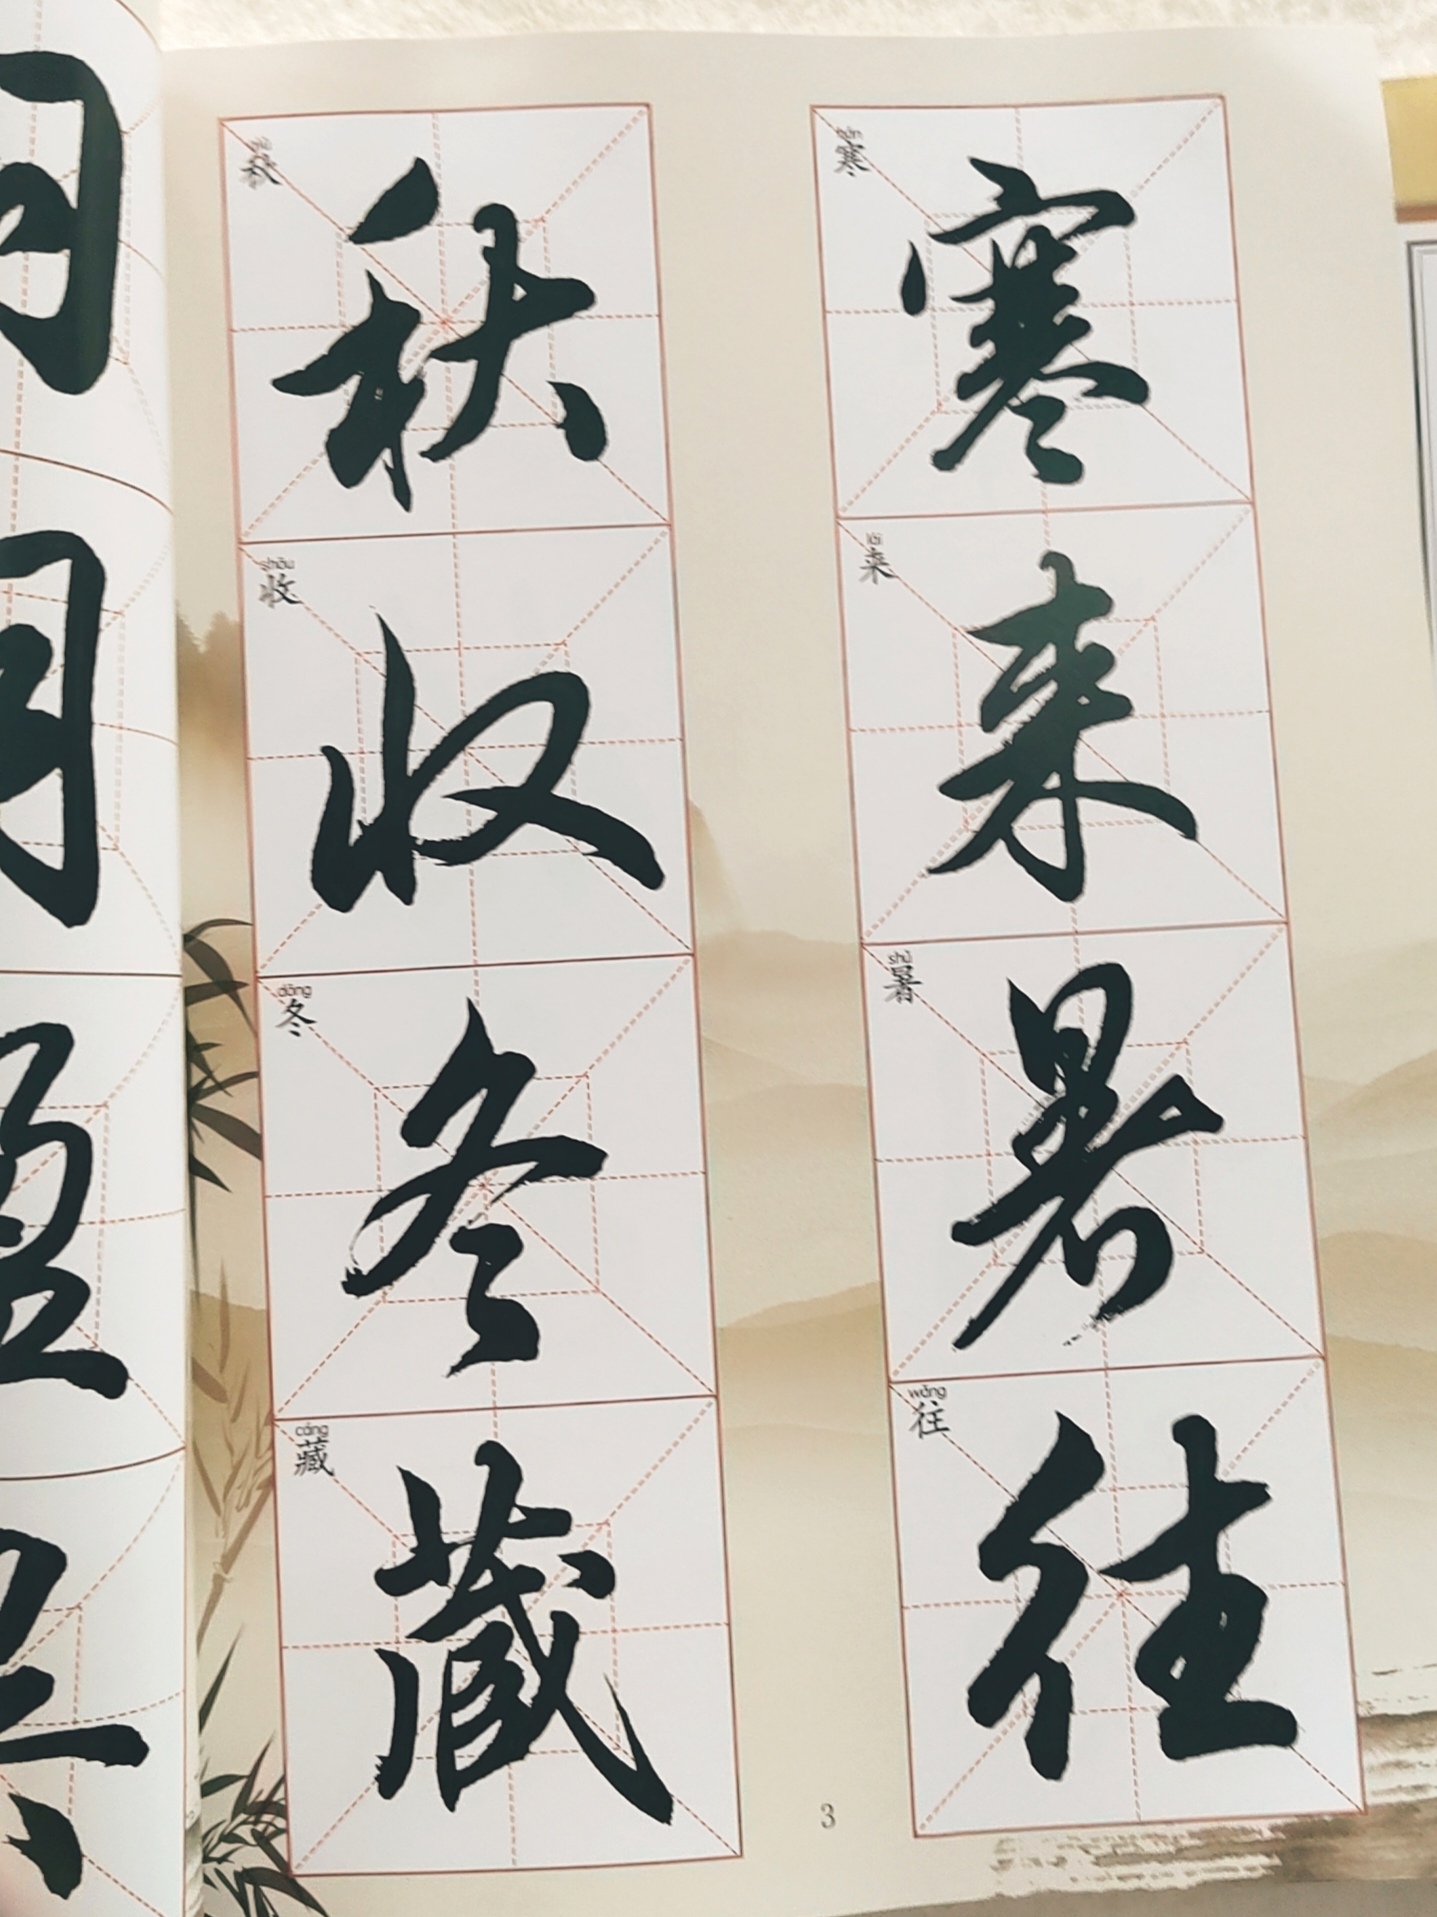 hán
寒
寒
lái
来
来
shǔ
暑
暑
wǎng
往
往
qiū
秋
秋
shōu
收
收
dōng
冬
冬
cáng
藏
藏
3
月
盈